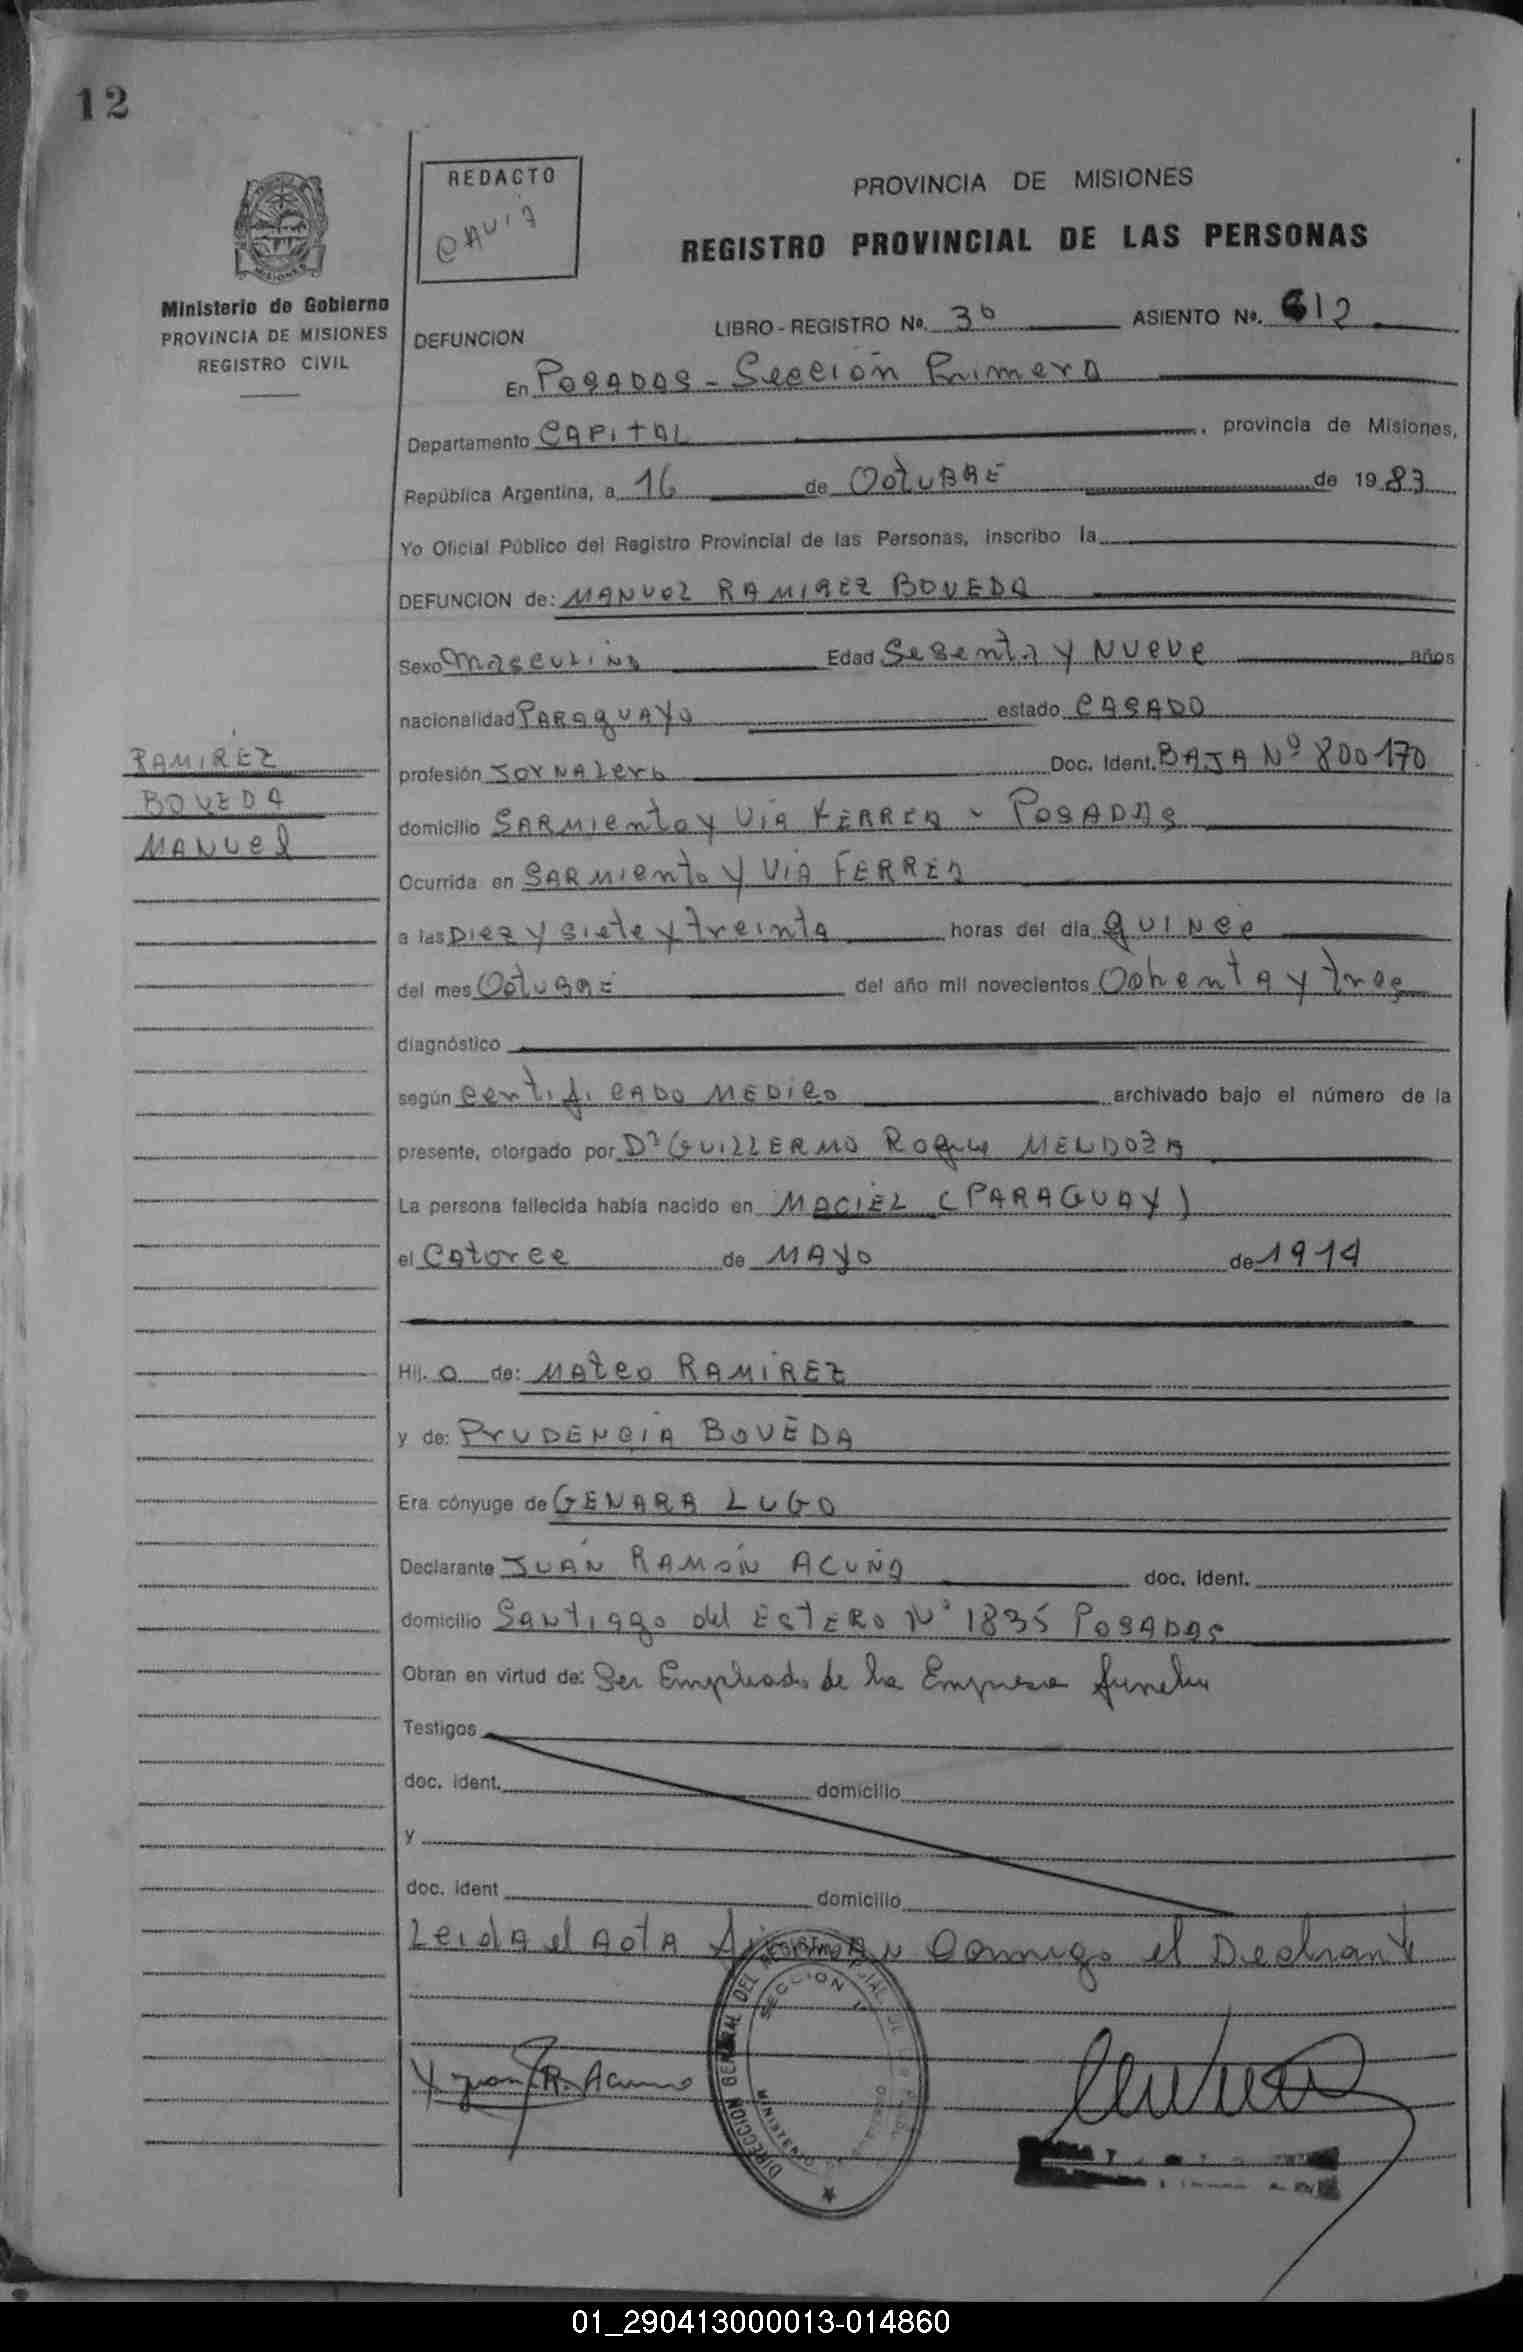 12
REDACTO
PROVINCIA DE MISIONES
REGISTRO PROVINCIAL DE LAS PERSONAS
MISIONES
Ministerio de Gobierno
PROVINCIA DE MISIONES
REGISTRO CIVIL
DEFUNCION
LIBRO - REGISTRO Nº. 3º ASIENTO Nº. 612
En POSADAS - Sección Primera
Departamento CAPITAL, provincia de Misiones,
República Argentina, a 16 de OCTUBRE de 1983
Yo Oficial Público del Registro Provincial de las Personas, inscribo la
DEFUNCION de: MANUEL RAMIREZ BOVEDA
Sexo MASCULINO Edad Sesenta y NUEVE años
nacionalidad PARAGUAYO estado CASADO
RAMIREZ
BOVEDA
MANUEL
profesión JORNALERO Doc. Ident. BAJA Nº 800170
domicilio SARMIENTO y VIA FERREA - POSADAS
Ocurrida en SARMIENTO y VIA FERREA
a las DIEZ y siete y treinta horas del día QUINCE
del mes OCTUBRE del año mil novecientos Ochenta y tres
diagnóstico
según certificado MEDICO archivado bajo el número de la
presente, otorgado por Dr GUILLERMO Roque MENDOZA
La persona fallecida había nacido en MACIEL (PARAGUAY)
el CATORCE de MAYO de 1914
Hij. o de: MATEO RAMIREZ
y de: PRUDENCIA BOVEDA
Era cónyuge de GENARA LUGO
Declarante JUAN RAMÓN ACUÑA doc. ident.
domicilio SANTIAGO del ESTERO Nº 1835 POSADAS
Obran en virtud de: Ser Empleado de la Empresa funebre
Testigos
doc. ident. domicilio
y
doc. ident domicilio
Leida el ACTA conmigo el Declarante
DIRECCION GENERAL DEL REGISTRO
SECCION 1ª
MINISTERIO
Juan R. Acuña
01_290413000013-014860